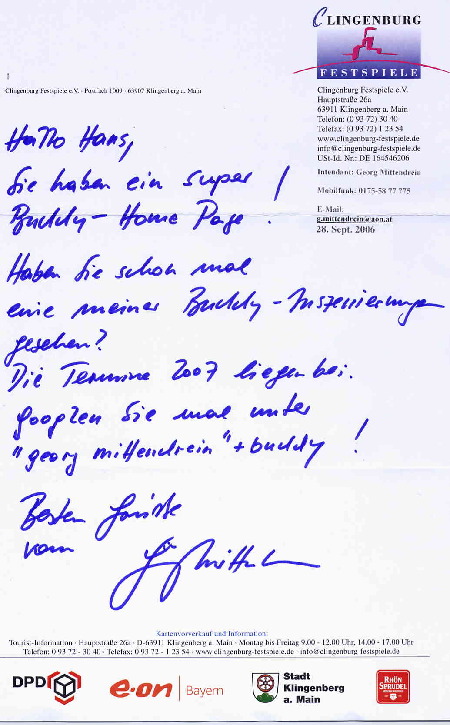 CLINGENBURG
FESTSPIELE
Clingenburg Festspiele e.V. · Postfach 1009 · 63907 Klingenberg a. Main
Clingenburg Festspiele e.V.
Hauptstraße 26a
63911 Klingenberg a. Main
Telefon: (0 93 72) 30 40
Telefax: (0 93 72) 1 23 54
www.clingenburg-festspiele.de
info@clingenburg-festspiele.de
USt-Id. Nr.: DE 164546206
Intendant: Georg Mittendrein
Mobilfunk: 0175-58 77 775
E-Mail:
g.mittendrein@aon.at
28. Sept. 2006
Hallo Hans,
Sie haben ein super
Buddy-Home Page!
Haben Sie schon mal
eine meiner Buddy-Inszenierungen
gesehen?
Die Termine 2007 liegen bei.
googlen Sie mal unter
"georg mittendrein" + buddy!
Besten Grüße
vom
Kartenvorverkauf und Information:
Tourist-Information · Hauptstraße 26a · D-63911 Klingenberg a. Main · Montag bis Freitag 9.00 - 12.00 Uhr, 14.00 - 17.00 Uhr
Telefon: 0 93 72 - 30 40 · Telefax: 0 93 72 - 1 23 54 · www.clingenburg-festspiele.de · info@clingenburg-festspiele.de
DPD
e·on | Bayern
Stadt
Klingenberg
a. Main
RHÖN
SPRUDEL